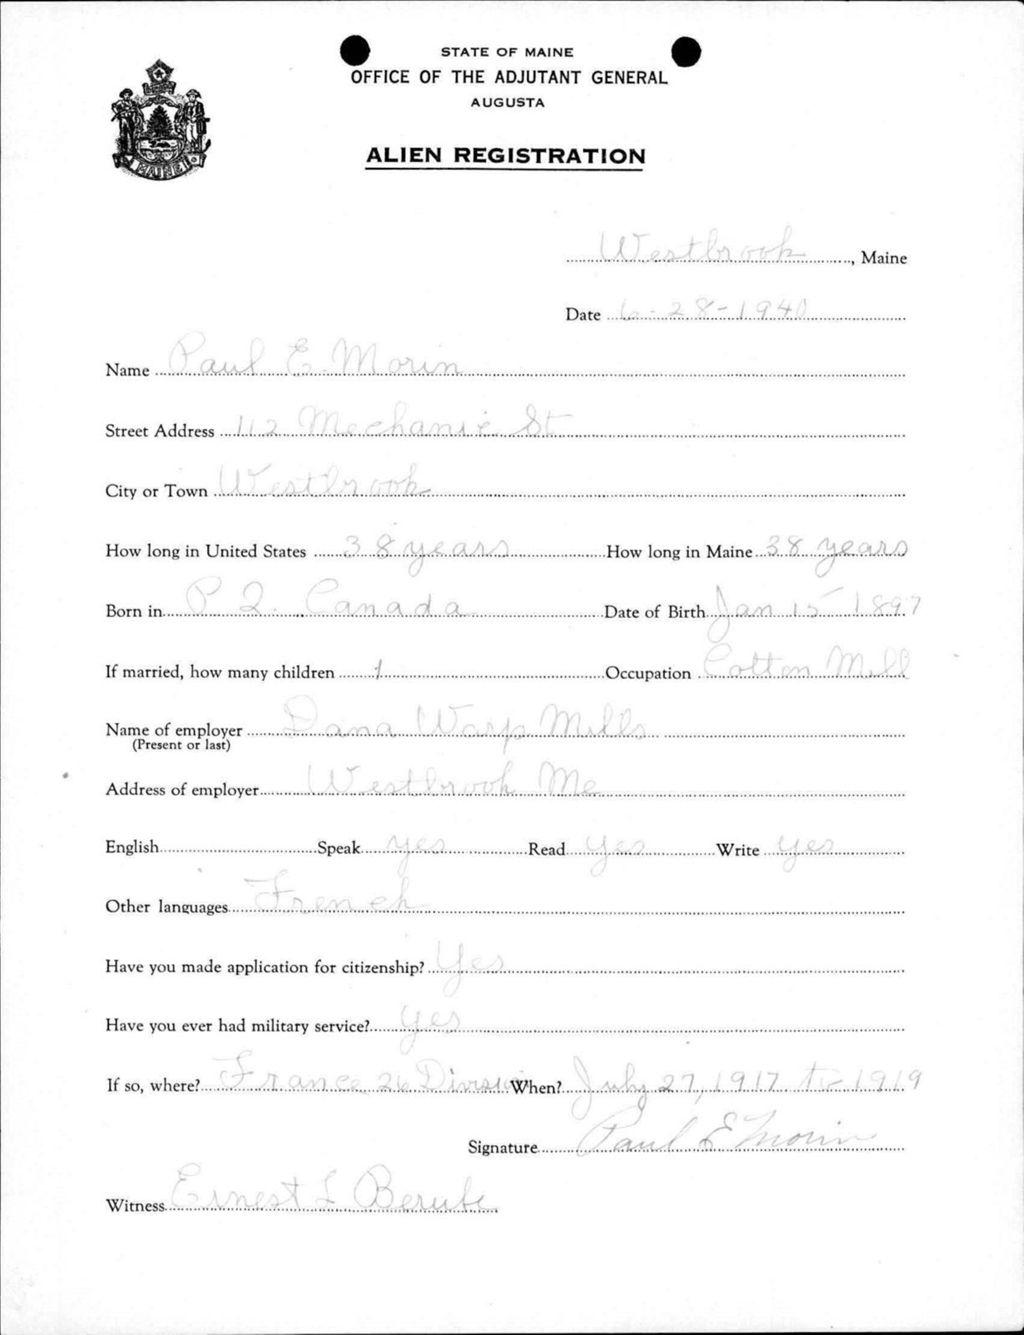 STATE OF MAINE
OFFICE OF THE ADJUTANT GENERAL
AUGUSTA
ALIEN REGISTRATION
MAINE
Westbrook, Maine
Date 6-28-1940
Name Paul E. Morin
Street Address 112 Mechanic St
City or Town Westbrook
How long in United States 38 years How long in Maine 38 years
Born in P Q. Canada Date of Birth Jan 15 1897
If married, how many children 1 Occupation Cotton Mill
Name of employer Dana Warp Mills
(Present or last)
Address of employer Westbrook Me
English Speak yes Read yes Write yes
Other languages French
Have you made application for citizenship? Yes
Have you ever had military service? yes
If so, where? France 26 Division When? July 27, 1917 to 1919
Signature Paul E Morin
Witness Ernest L Berube